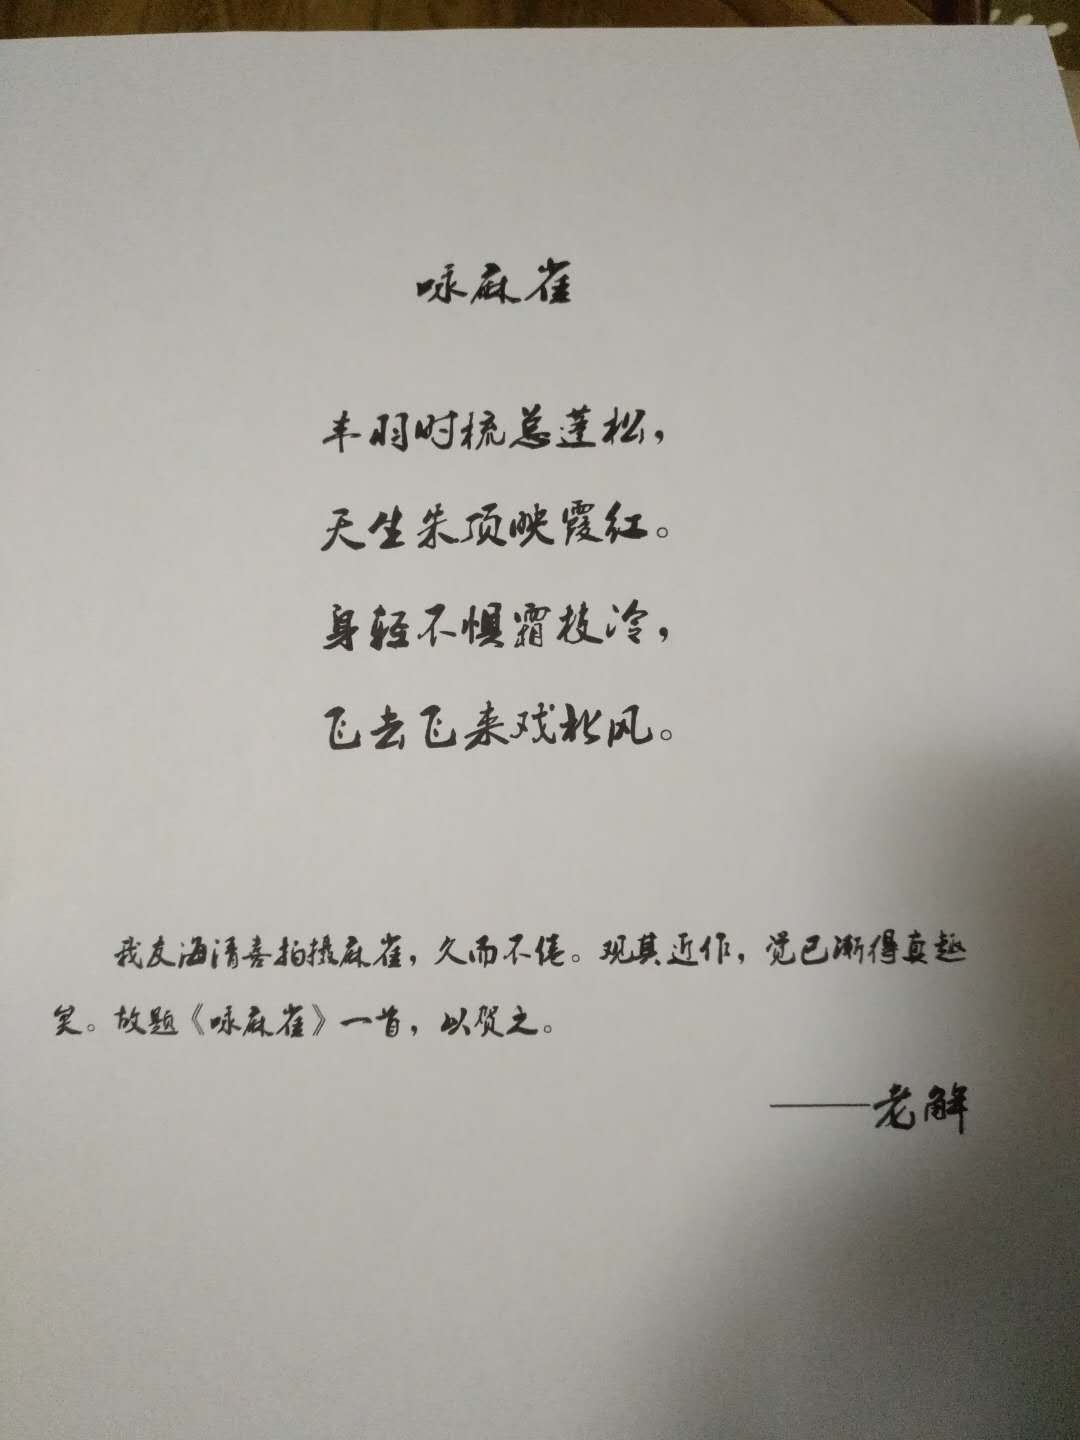 咏麻雀
丰羽时梳总蓬松，
天生朱顶映霞红。
身轻不惧霜枝冷，
飞去飞来戏北风。
我友海清喜拍摄麻雀，久而不倦。观其近作，觉已渐得真趣
矣。故题《咏麻雀》一首，以贺之。
——老解